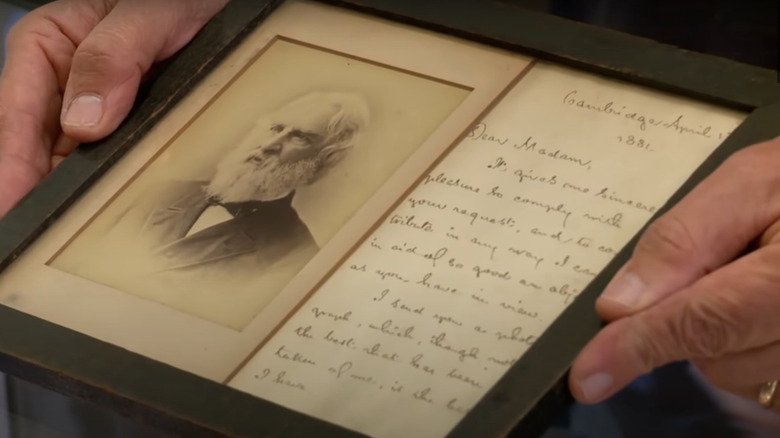 Cambridge April
1881.
Dear Madam,
It gives me sincere
pleasure to comply with
your request, and to co
tribute in any way I can
in aid of so good an obj
as you have in view.
I send you a photo
graph, which, though not
the best that has been
taken of me, is the be
I have.